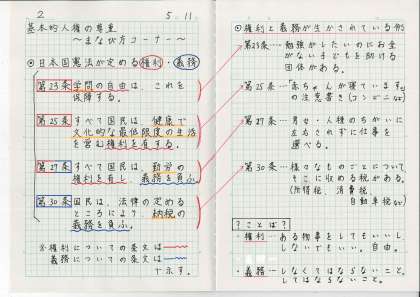 2
5.11
基本的人権の尊重
～まなび方コーナー～
◎日本国憲法が定める権利・義務
第23条 学問の自由は、これを
保障する。
第25条 すべて国民は、健康で
文化的な最低限度の生活
を営む権利を有する。
第27条 すべて国民は、勤労の
権利を有し、義務を負ふ。
第30条 国民は、法律の定める
ところにより、納税の
義務を負ふ。
※権利についての条文は
義務についての条文は
で示す。
◎権利と義務が生かされている例
第23条…勉強がしたいのにお金
がない子どもを助ける
団体がある。
第25条…「赤ちゃんが寝ています」
の注意書き(コンビニなど)
第27条…男女・人種のちがいに
左右されずに仕事を
選べる。
第30条…様々なものごとについて
そこに収める税がある。
(所得税 消費税
自動車税など)
？ことば？
・権利…ある物事をしてもいいし
しないでもいい。自由。
・義務…しなくてはならないこと。
してはならないこと。